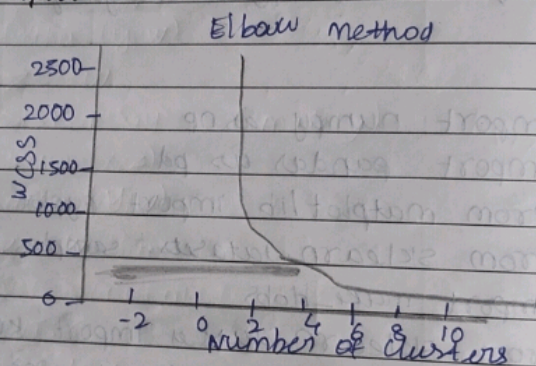 Elbow method
2500
2000
WCSS
1500
1000
500
0
-2 0 2 4 6 8 10
Number of clusters